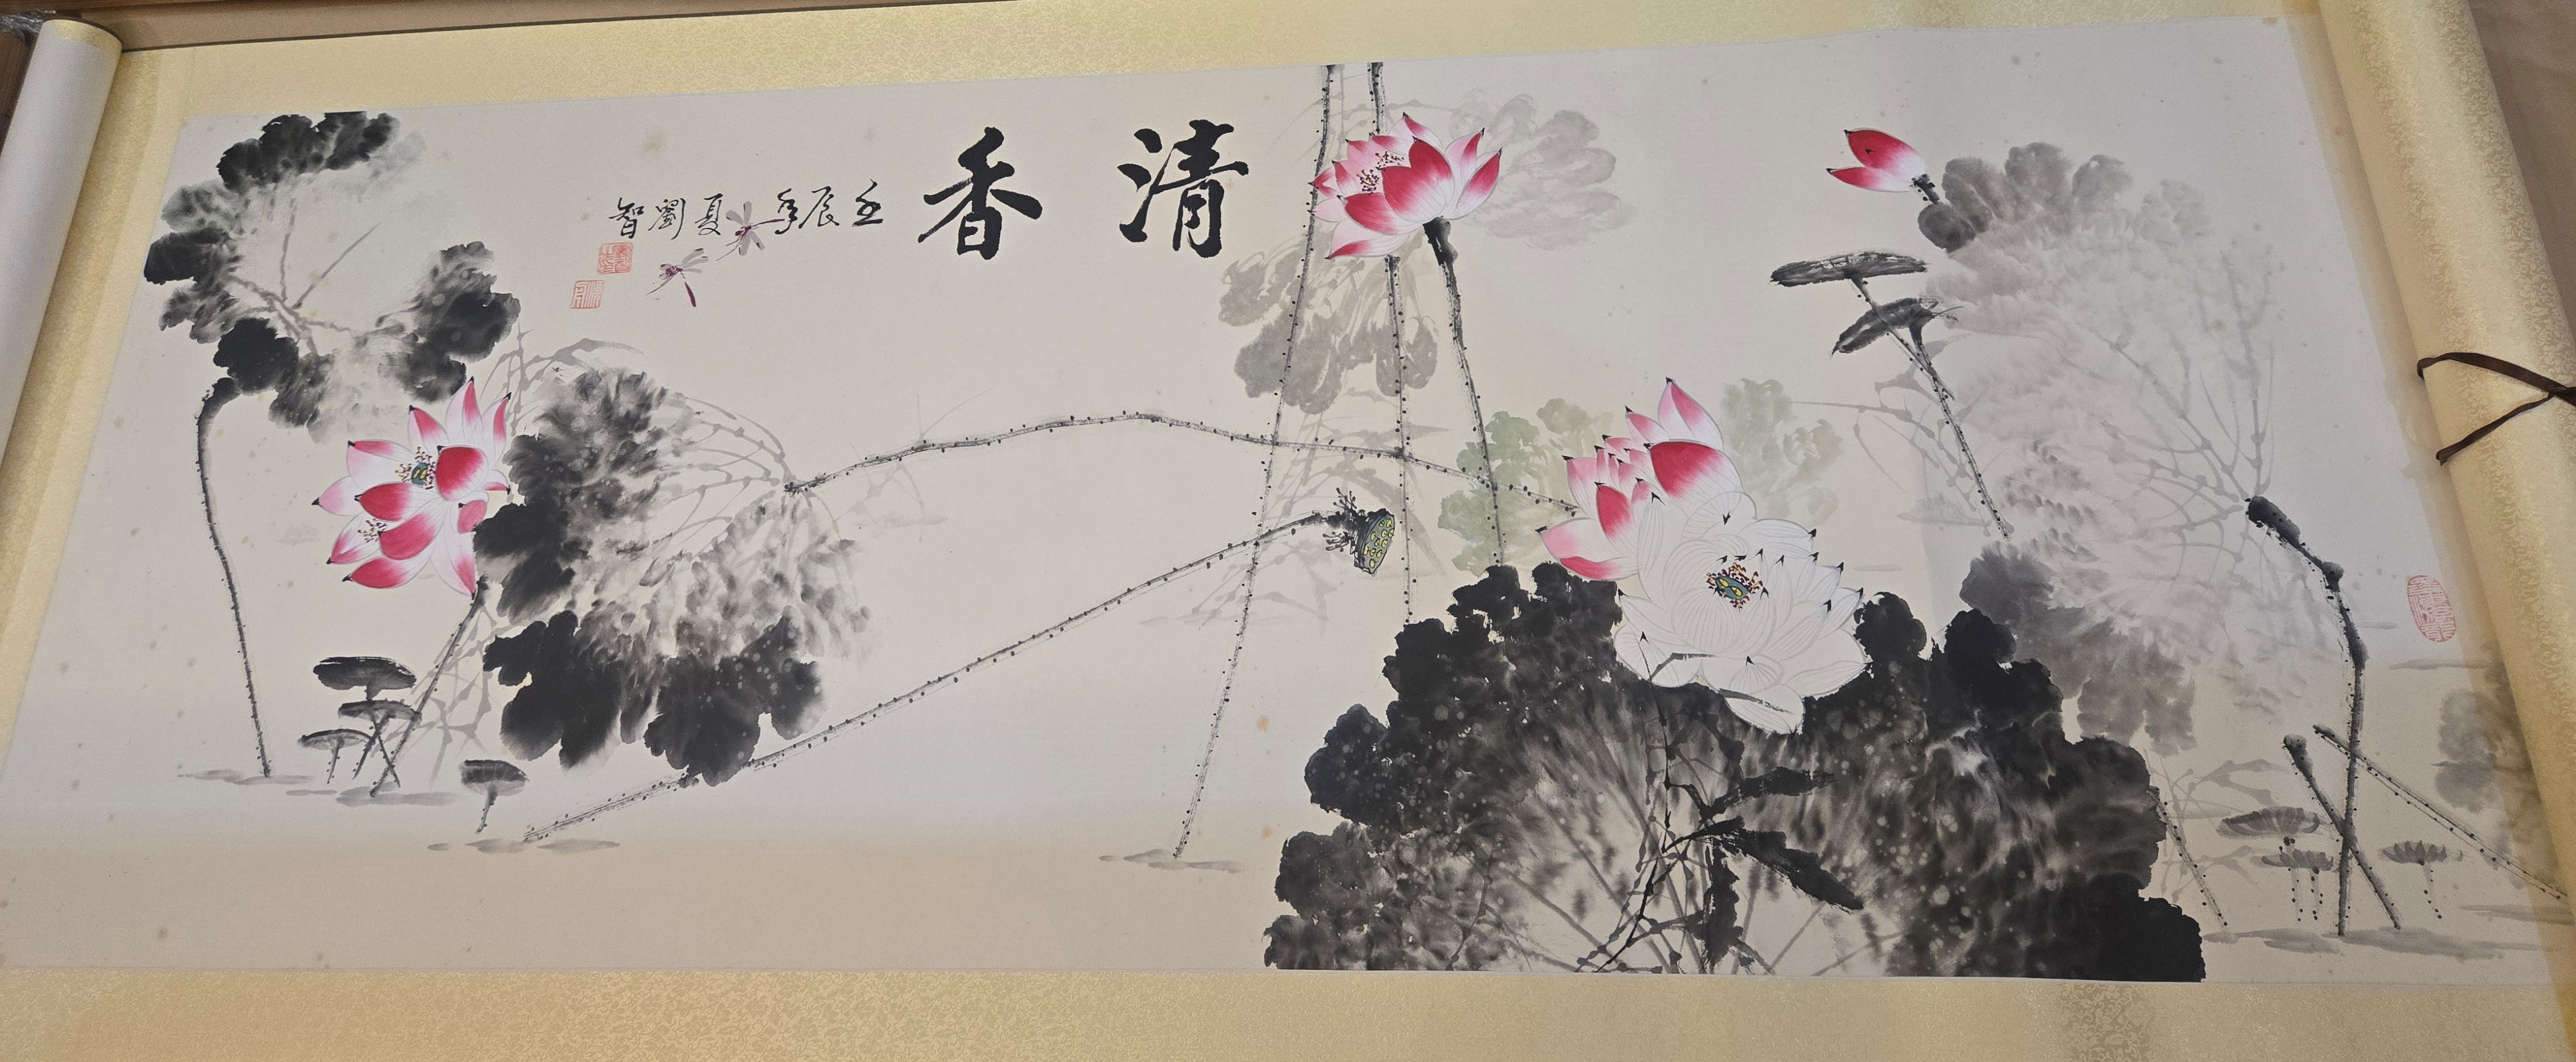 清香
壬辰年夏劉智